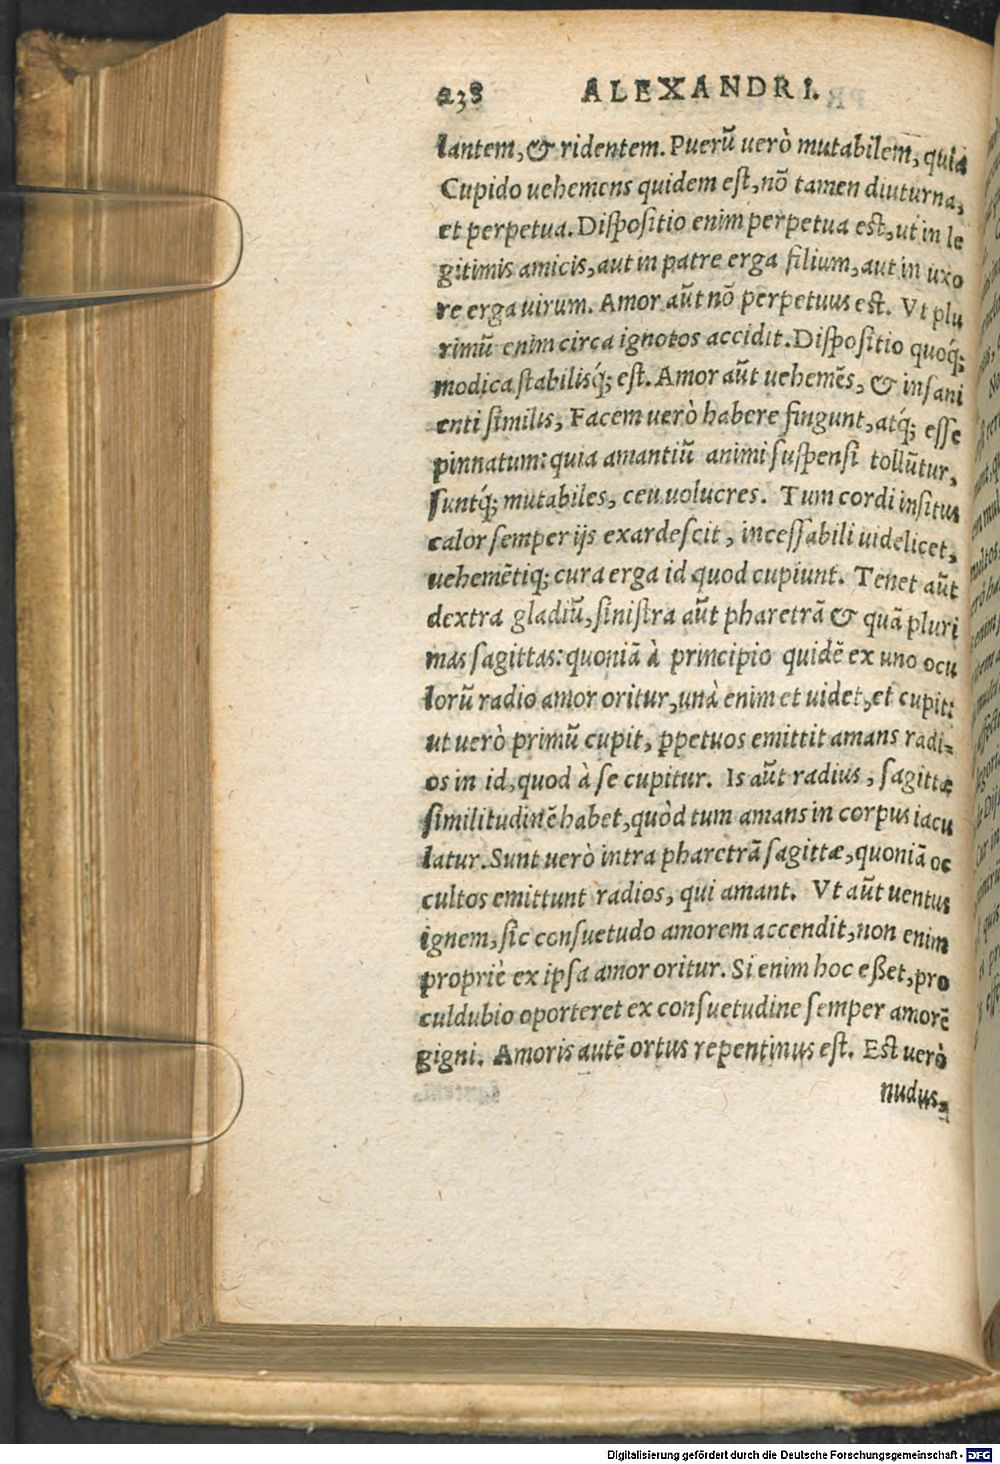 238 ALEXANDRI.
lantem, & ridentem. Puerũ uerò mutabilem, quia
Cupido uehemens quidem eſt, nõ tamen diuturna,
et perpetua. Diſpoſitio enim perpetua eſt, ut in le
gitimis amicis, aut in patre erga filium, aut in uxo
re erga uirum. Amor aũt nõ perpetuus eſt. Vt plu
rimũ enim circa ignotos accidit. Diſpoſitio quoq́;
modica ſtabilisq́; eſt. Amor aũt uehemẽs, & inſani
enti ſimilis, Facem uerò habere fingunt, atq́; eſſe
pinnatum: quia amantiũ animi ſuſpenſi tollũtur,
ſuntq́; mutabiles, ceu uolucres. Tum cordi inſitus
calor ſemper ijs exardeſcit, inceſſabili uidelicet,
uehemẽtiq; cura erga id quod cupiunt. Tenet aũt
dextra gladiũ, ſiniſtra aũt pharetrã & quã pluri
mas ſagittas: quoniã à principio quidẽ ex uno ocu
lorũ radio amor oritur, unà enim et uidet, et cupit:
ut uerò primũ cupit, ꝑpetuos emittit amans radi-
os in id, quod à ſe cupitur. Is aũt radius, ſagittæ
ſimilitudinẽ habet, quòd tum amans in corpus iacu
latur. Sunt uerò intra pharetrã ſagittæ, quoniã oc
cultos emittunt radios, qui amant. Vt aũt uentus
ignem, ſic conſuetudo amorem accendit, non enim
propriè ex ipſa amor oritur. Si enim hoc eßet, pro
culdubio oporteret ex conſuetudine ſemper amorẽ
gigni. Amoris autẽ ortus repentinus eſt. Eſt uerò
nudus,
Digitalisierung gefördert durch die Deutsche Forschungsgemeinschaft - DFG